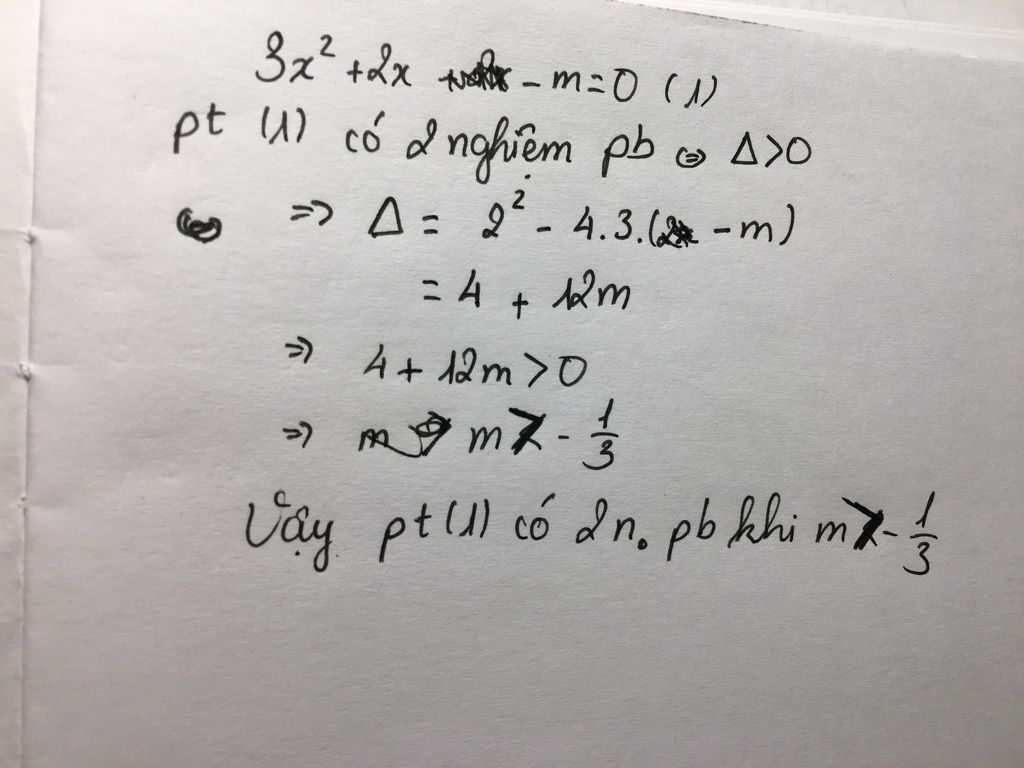 3x² + 2x - m = 0 (1)
pt (1) có 2 nghiệm pb ⇔ Δ > 0
⇒ Δ = 2² - 4.3.( - m)
= 4 + 12m
⇒ 4 + 12m > 0
⇒ m > - 1/3
Vậy pt (1) có 2 n. pb khi m > - 1/3